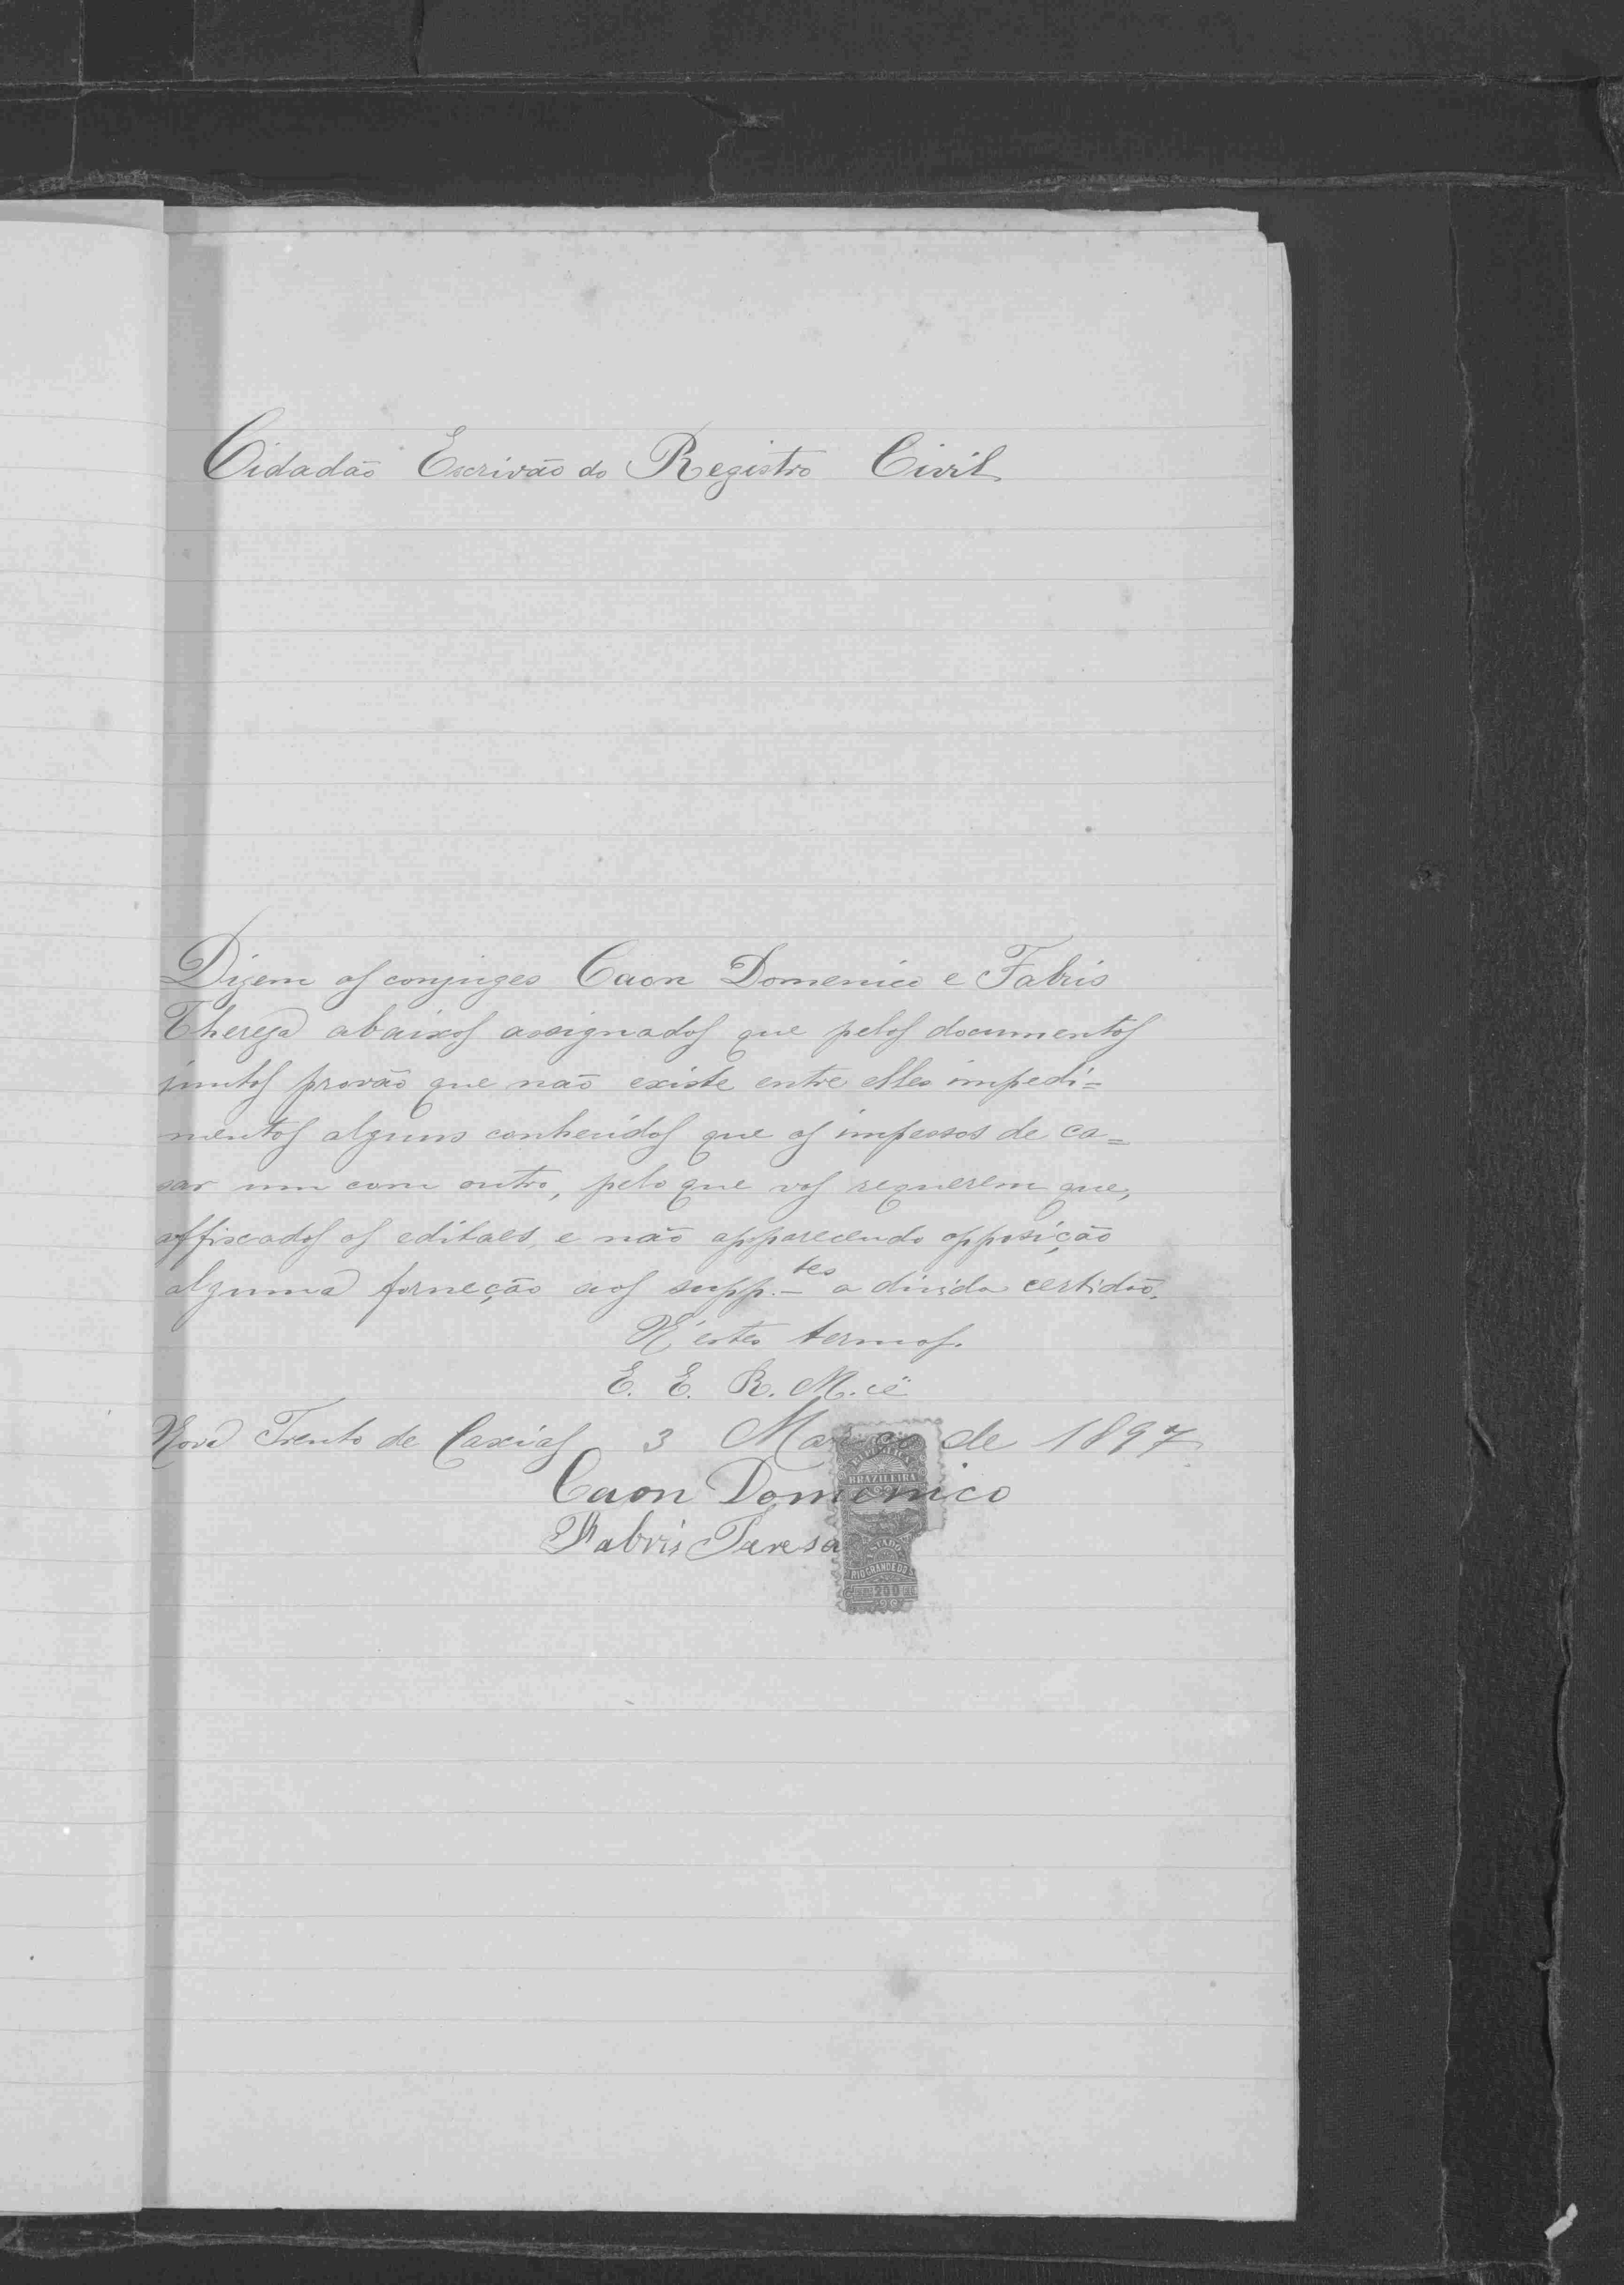 Cidadão Escrivão do Registro Civil
Dizem os conjuges Caon Domenico e Fabris
Thereza abaixos assignados que pelos documentos
juntos provão que não existe entre elles impedi=
mentos alguns conhecidos que os impessos de ca=
sar um com outro, pelo que vos requerem que,
affixados os editaes, e não apparecendo opposição
alguma forneção aos supp.tes a divida certidão.
N'estes termos.
E. E. R. M.cê
Nova Trento de Caxias 3 Março de 1897
Caon Domenico
Fabris Taresa
REPUBLICA
BRAZILEIRA
ESTADO
RIO GRANDE DO
200